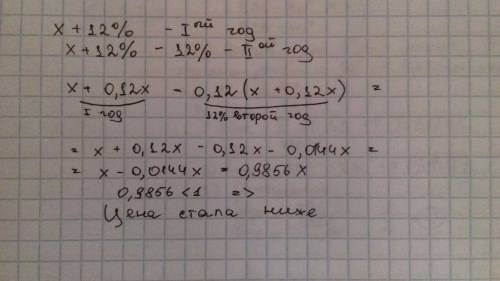 x + 12% - I ый год
x + 12% - 12% - II ой год
x + 0,12x - 0,12 (x + 0,12x) =
I год 12% второй год
= x + 0,12x - 0,12x - 0,0144x =
= x - 0,0144x = 0,9856x
0,9856 < 1 =>
Цена стала ниже